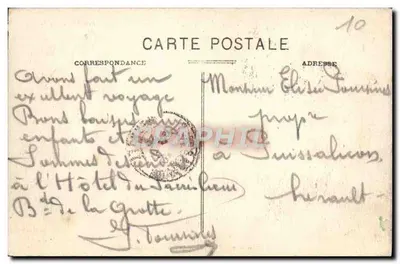 10
CARTE POSTALE
CORRESPONDANCE
ADRESSE
Avons fait un
excellent voyage
Bons baisers aux
enfants et
Sommes descendus
à l'Hôtel du
Bd de la Grotte
Monsieur Elisée
propre
à Puissalicon
herault